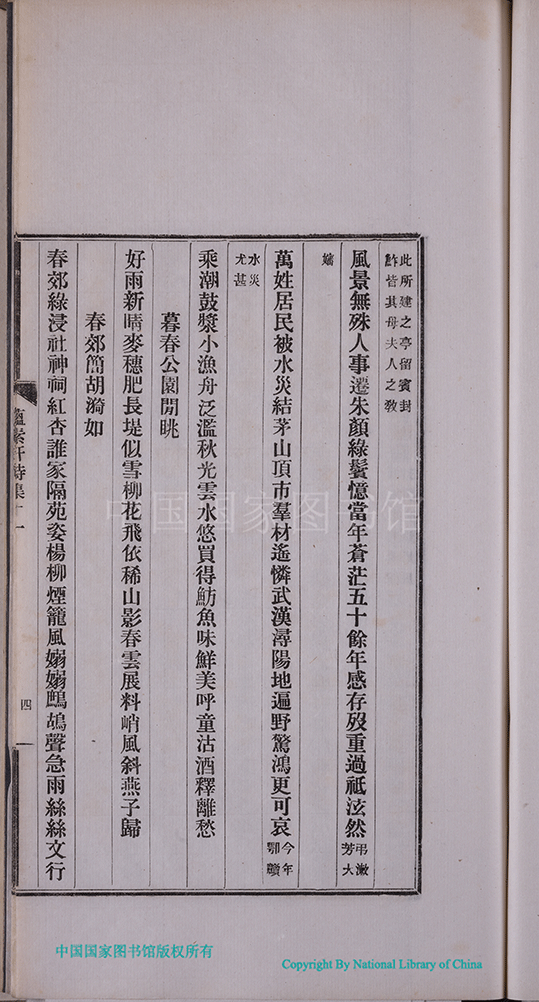 此所建之亭留賓封
鮓皆其母夫人之敎
風景無殊人事遷朱顏綠鬢憶當年蒼茫五十餘年感存歿重過祗泫然弔漱芳大
嬸
萬姓居民被水災結茅山頂市羣材遙憐武漢潯陽地遍野驚鴻更可哀今年鄂贛
水災
尤甚
乘潮鼓槳小漁舟泛濫秋光雲水悠買得魴魚味鮮美呼童沽酒釋離愁
暮春公園閒眺
好雨新晴麥穗肥長堤似雪柳花飛依稀山影春雲展料峭風斜燕子歸
春郊簡胡漪如
春郊綠浸社神祠紅杏誰家隔苑姿楊柳煙籠風嫋嫋鷓鴣聲急雨絲絲文行
蘊素軒詩集十一
四
中国国家图书馆
中国国家图书馆版权所有
Copyright By National Library of China